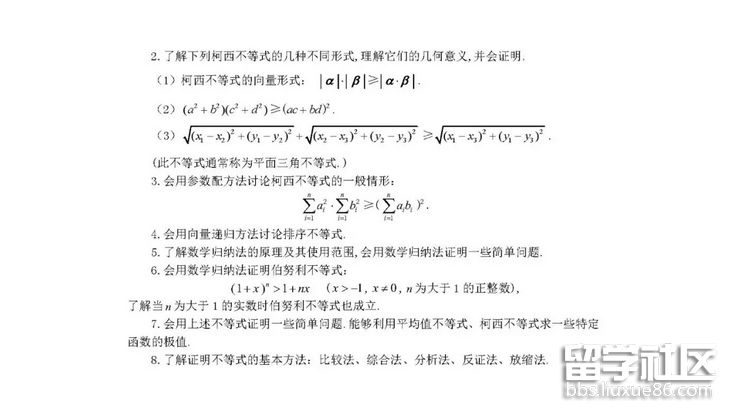 2.了解下列柯西不等式的几种不同形式,理解它们的几何意义,并会证明.
（1）柯西不等式的向量形式： |α|·|β|≥|α·β|.
（2）(a²+b²)(c²+d²)≥(ac+bd)².
（3）√((x₁-x₂)²+(y₁-y₂)²)+√((x₂-x₃)²+(y₂-y₃)²) ≥√((x₁-x₃)²+(y₁-y₃)²) .
(此不等式通常称为平面三角不等式.)
3.会用参数配方法讨论柯西不等式的一般情形：
∑ᵢ₌₁ⁿaᵢ²·∑ᵢ₌₁ⁿbᵢ²≥(∑ᵢ₌₁ⁿaᵢbᵢ)².
4.会用向量递归方法讨论排序不等式.
5.了解数学归纳法的原理及其使用范围,会用数学归纳法证明一些简单问题.
6.会用数学归纳法证明伯努利不等式：
(1+x)ⁿ>1+nx (x>-1, x≠0, n为大于1的正整数),
了解当n为大于1的实数时伯努利不等式也成立.
7.会用上述不等式证明一些简单问题.能够利用平均值不等式、柯西不等式求一些特定
函数的极值.
8.了解证明不等式的基本方法：比较法、综合法、分析法、反证法、放缩法.
留学社区
bbs.liuxue86.com